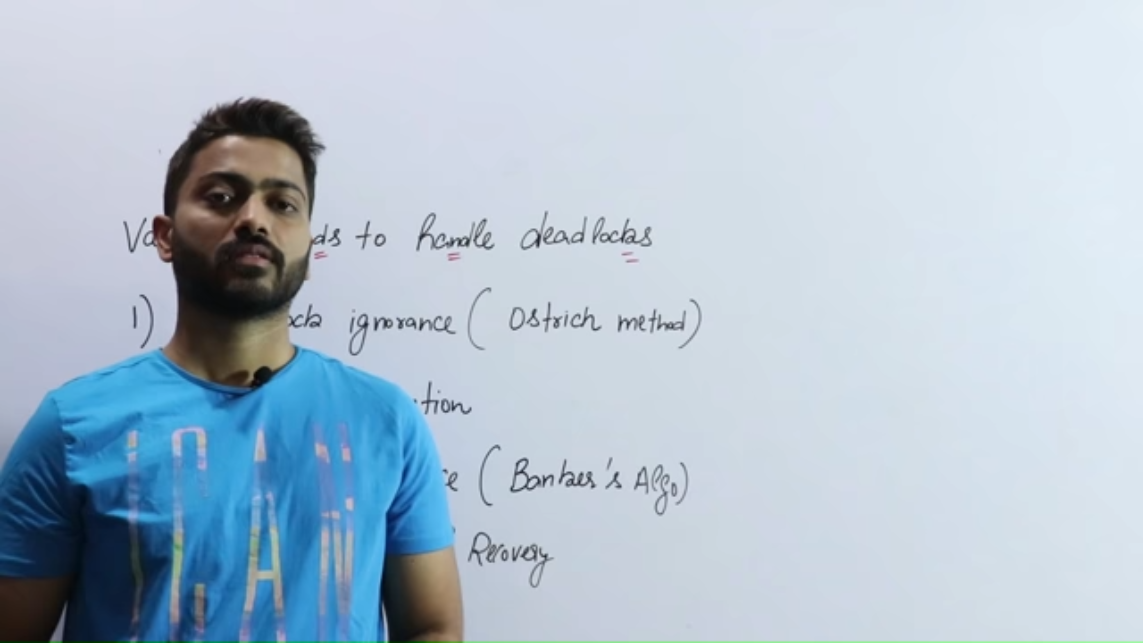 Va ds to handle deadlocks
1) ock ignorance ( Ostrich method)
tion
ce ( Banker's Algo)
Recovery
I CAN